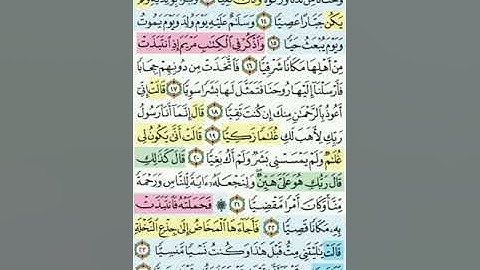 يَكُن جَبَّارًا عَصِيًّا ١٤ وَسَلَٰمٌ عَلَيْهِ يَوْمَ وُلِدَ وَيَوْمَ يَمُوتُ
وَيَوْمَ يُبْعَثُ حَيًّا ١٥ وَٱذْكُرْ فِي ٱلْكِتَٰبِ مَرْيَمَ إِذِ ٱنتَبَذَتْ
مِنْ أَهْلِهَا مَكَانًا شَرْقِيًّا ١٦ فَٱتَّخَذَتْ مِن دُونِهِمْ حِجَابًا
فَأَرْسَلْنَآ إِلَيْهَا رُوحَنَا فَتَمَثَّلَ لَهَا بَشَرًا سَوِيًّا ١٧ قَالَتْ إِنِّيٓ
أَعُوذُ بِٱلرَّحْمَٰنِ مِنكَ إِن كُنتَ تَقِيًّا ١٨ قَالَ إِنَّمَآ أَنَا۠ رَسُولُ
رَبِّكِ لِأَهَبَ لَكِ غُلَٰمًا زَكِيًّا ١٩ قَالَتْ أَنَّىٰ يَكُونُ لِي
غُلَٰمٌ وَلَمْ يَمْسَسْنِي بَشَرٌ وَلَمْ أَكُ بَغِيًّا ٢٠ قَالَ كَذَٰلِكِ
قَالَ رَبُّكِ هُوَ عَلَيَّ هَيِّنٌ وَلِنَجْعَلَهُۥٓ ءَايَةً لِّلنَّاسِ وَرَحْمَةً
مِّنَّا وَكَانَ أَمْرًا مَّقْضِيًّا ٢١ ۞ فَحَمَلَتْهُ فَٱنتَبَذَتْ
بِهِۦ مَكَانًا قَصِيًّا ٢٢ فَأَجَآءَهَا ٱلْمَخَاضُ إِلَىٰ جِذْعِ ٱلنَّخْلَةِ
قَالَتْ يَٰلَيْتَنِي مِتُّ قَبْلَ هَٰذَا وَكُنتُ نَسْيًا مَّنسِيًّا ٢٣